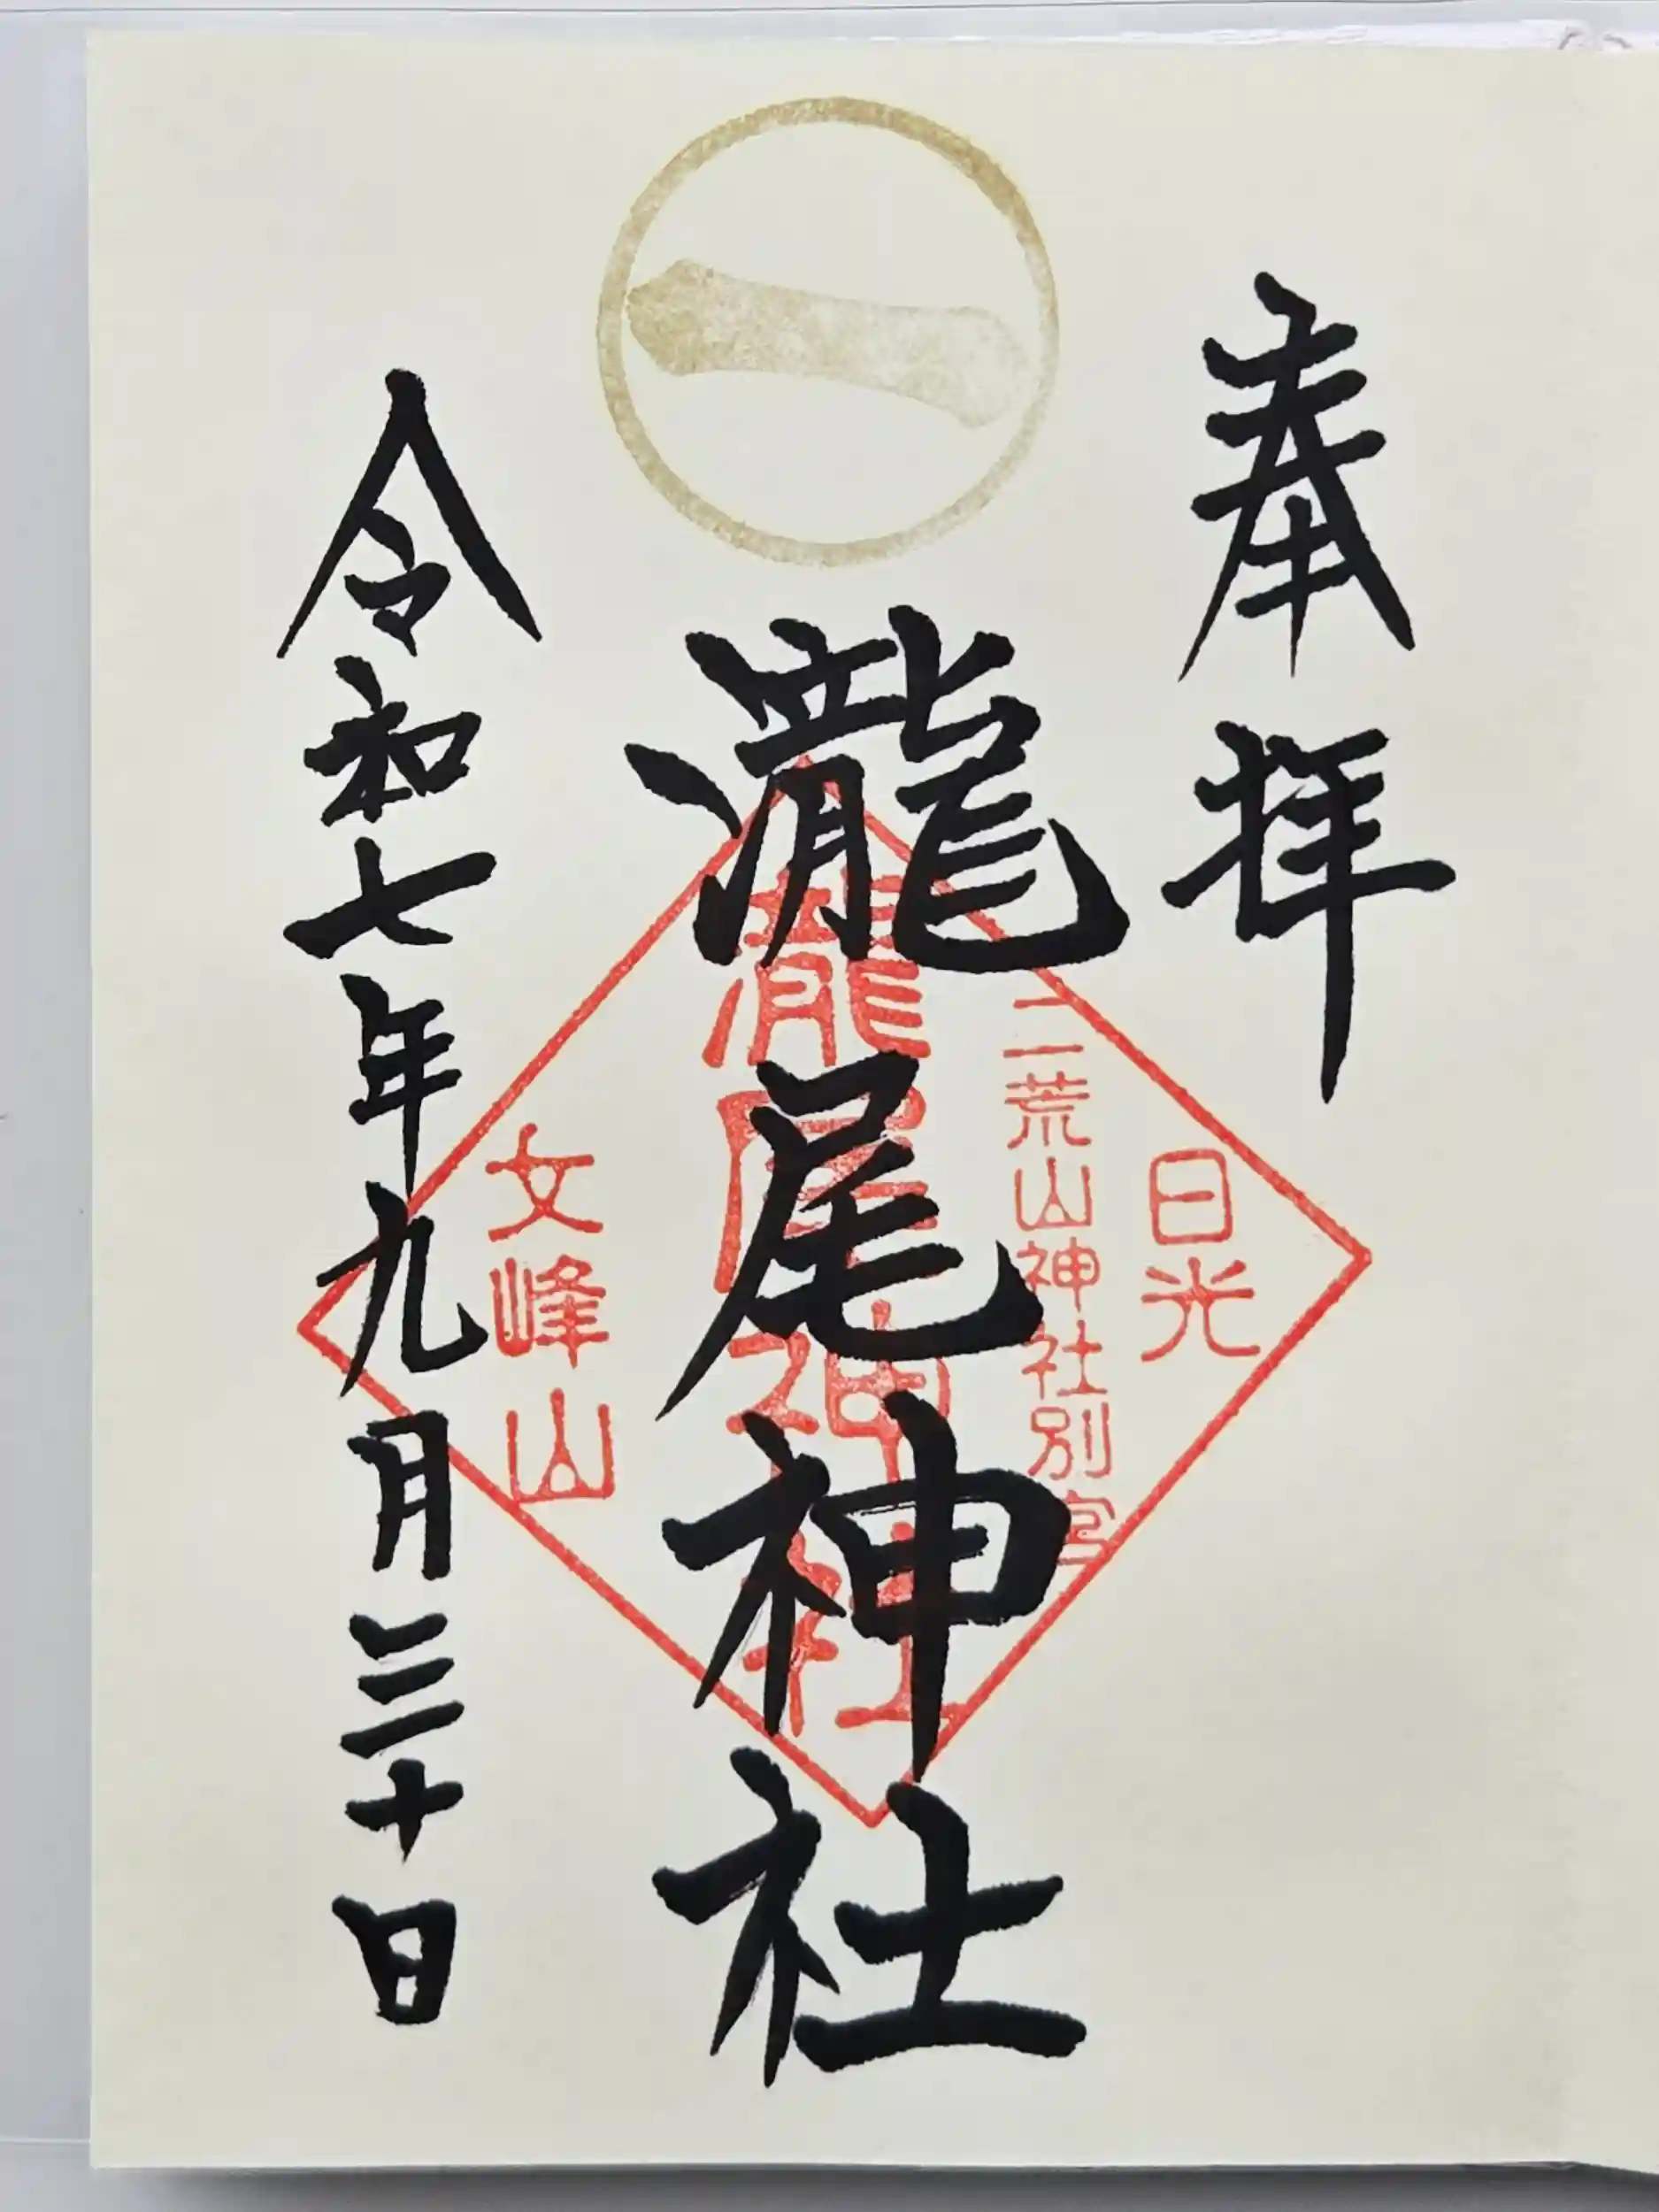 奉拝
一
瀧尾神社
令和七年九月三十日
日光
二荒山神社別宮
瀧尾神社
文峰山